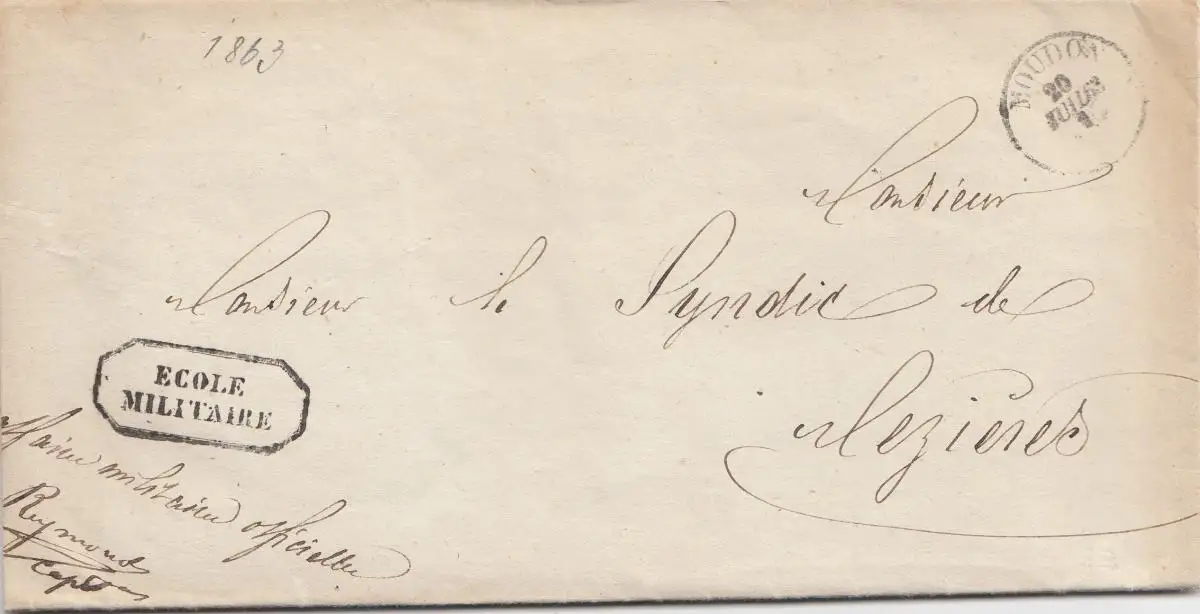 1863
MOUDON
20
JUIL 63
Monsieur
Monsieur le Syndic de
Mezières
ECOLE
MILITAIRE
affaires militaires officielles
Reymond